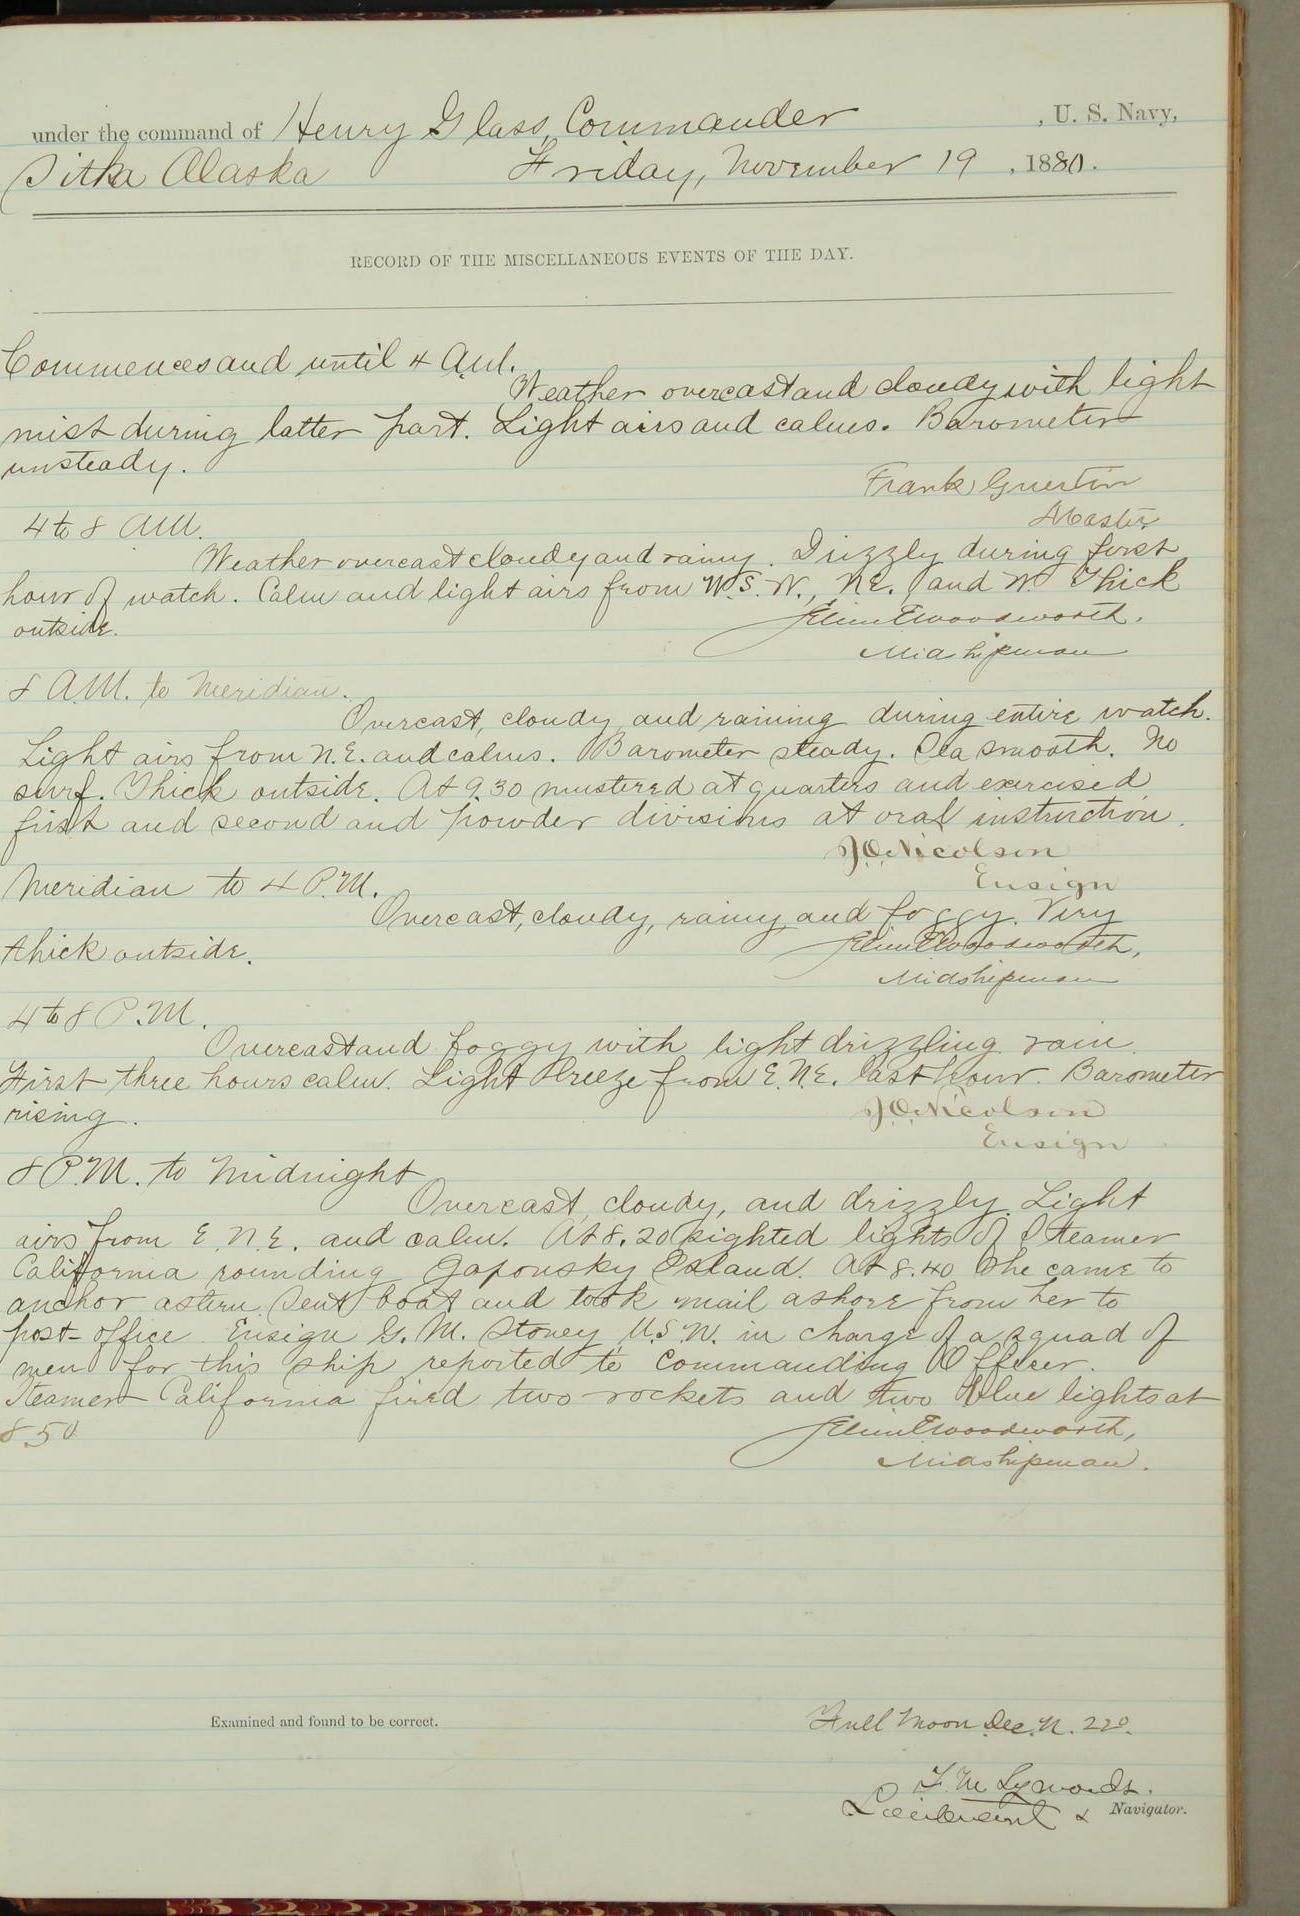 under the command of Henry Glass, Commander , U. S. Navy,
Sitka Alaska Friday, November 19 , 1880.
RECORD OF THE MISCELLANEOUS EVENTS OF THE DAY.
Commences and until 4 A.M.
Weather overcast and cloudy with light
mist during latter part. Light airs and calms. Barometer
unsteady.
Frank Guertin
Master
4 to 8 A.M.
Weather overcast cloudy and rainy. Drizzly during first
hour of watch. Calm and light airs from W.S.W., N.E. and N. Thick
outside.
Woodworth.
Midshipman
8 A.M. to Meridian.
Overcast, cloudy and raining during entire watch.
Light airs from N.E. and calms. Barometer steady. Sea smooth. No
surf. Thick outside. At 9.30 mustered at quarters and exercised
first and second and powder divisions at oral instruction.
J.O. Nicolson
Ensign
Meridian to 4 P.M.
Overcast, cloudy, rainy and foggy. Very
thick outside.
Woodworth,
Midshipman
4 to 8 P.M.
Overcast and foggy with light drizzling rain.
First three hours calm. Light breeze from E.N.E. last hour. Barometer
rising.
J.O. Nicolson
Ensign
8 P.M. to Midnight
Overcast, cloudy, and drizzly. Light
airs from E.N.E. and calm. At 8.20 sighted lights of Steamer
California rounding Japonsky Island. At 8.40 she came to
anchor astern. Sent boat and took mail ashore from her to
post-office. Ensign G. M. Stoney U.S.N. in charge of a squad of
men for this ship reported to Commanding Officer.
Steamer California fired two rockets and two blue lights at
8.50
Woodworth,
Midshipman.
Examined and found to be correct.
Full Moon Dec. N. 22°.
F. M. Symonds.
Lieutenant & Navigator.